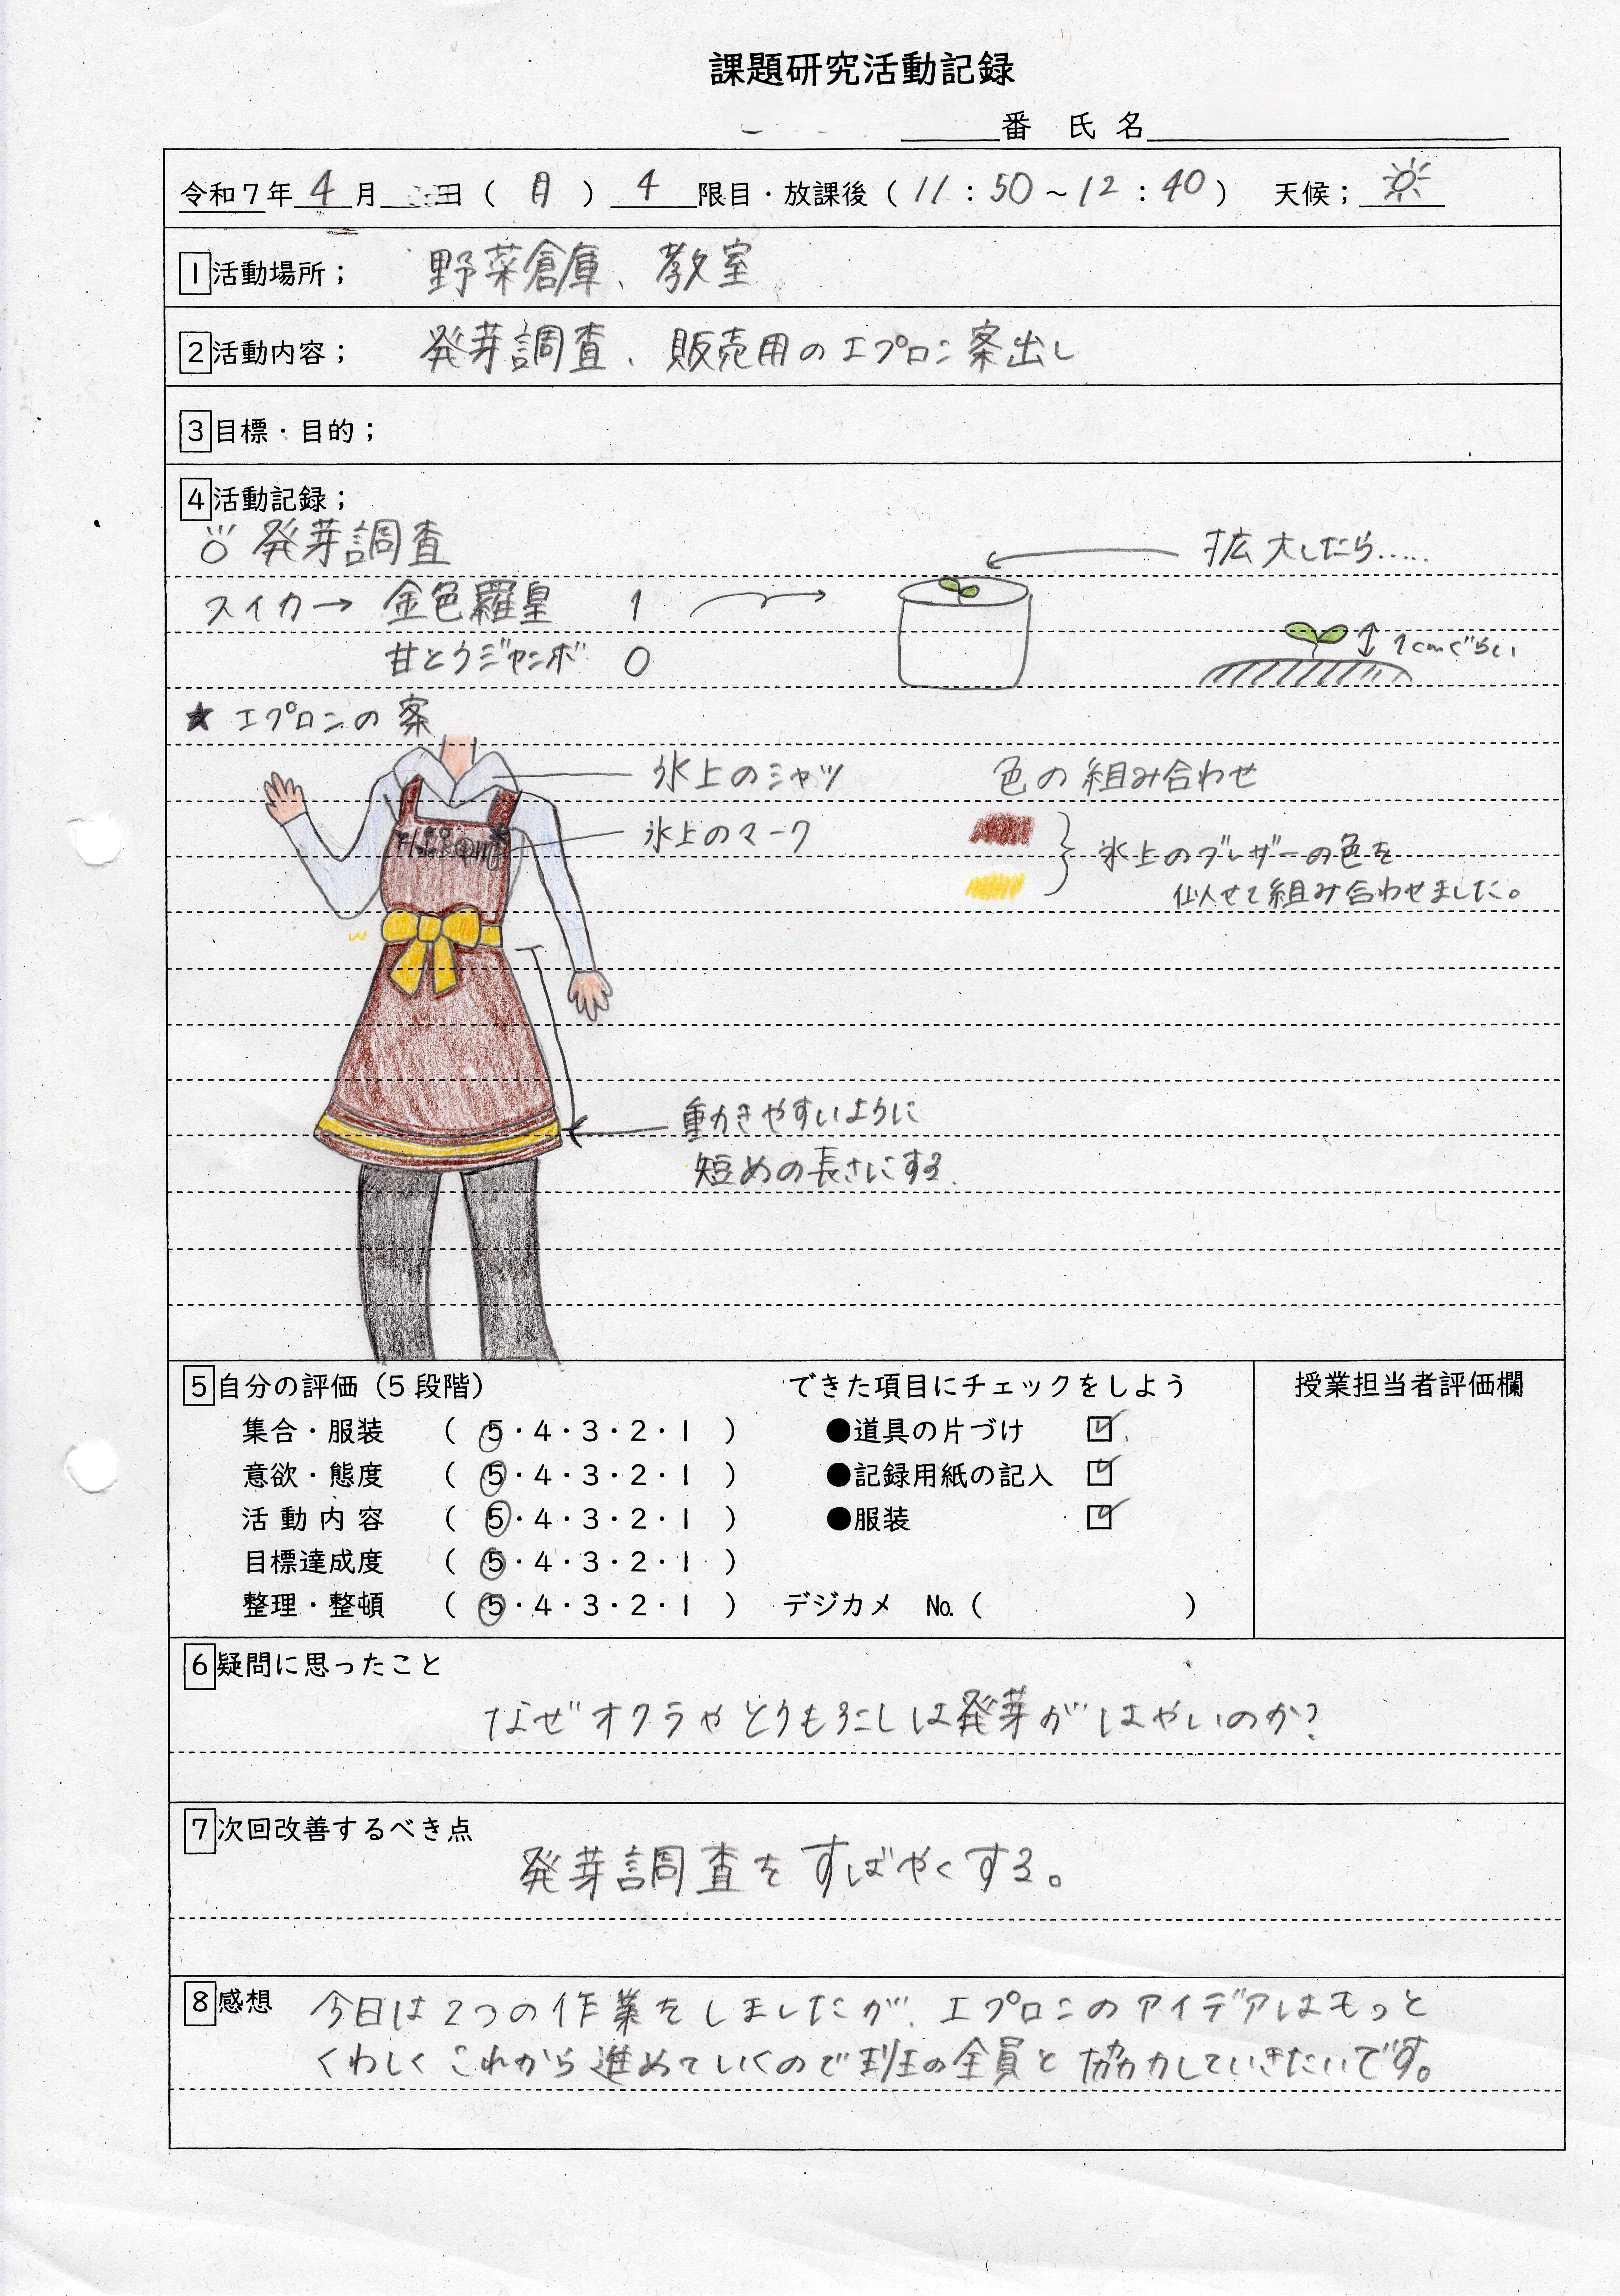 課題研究活動記録
番 氏 名
令和7年 4 月 日 ( 月 ) 4 限目・放課後 ( 11 : 50 ~ 12 : 40 ) 天候;
1 活動場所; 野菜倉庫、教室
2 活動内容; 発芽調査、販売用のエプロン案出し
3 目標・目的;
4 活動記録;
発芽調査
拡大したら.....
スイカ→ 金色羅皇 1
甘とうジャンボ 0
1cmぐらい
★ エプロンの案
氷上のシャツ
色の組み合わせ
氷上のマーク
氷上のブレザーの色を
似せて組み合わせました。
動きやすいように
短めの長さにする.
5 自分の評価(5段階) できた項目にチェックをしよう 授業担当者評価欄
集合・服装 ( 5・4・3・2・1 ) ●道具の片づけ ☑
意欲・態度 ( 5・4・3・2・1 ) ●記録用紙の記入 ☑
活動内容 ( 5・4・3・2・1 ) ●服装 ☑
目標達成度 ( 5・4・3・2・1 )
整理・整頓 ( 5・4・3・2・1 ) デジカメ №( )
6 疑問に思ったこと
なぜオクラやとうもろこしは発芽がはやいのか?
7 次回改善するべき点
発芽調査をすばやくする。
8 感想 今日は2つの作業をしましたが、エプロンのアイデアはもっと
くわしくこれから進めていくので班の全員と協力していきたいです。